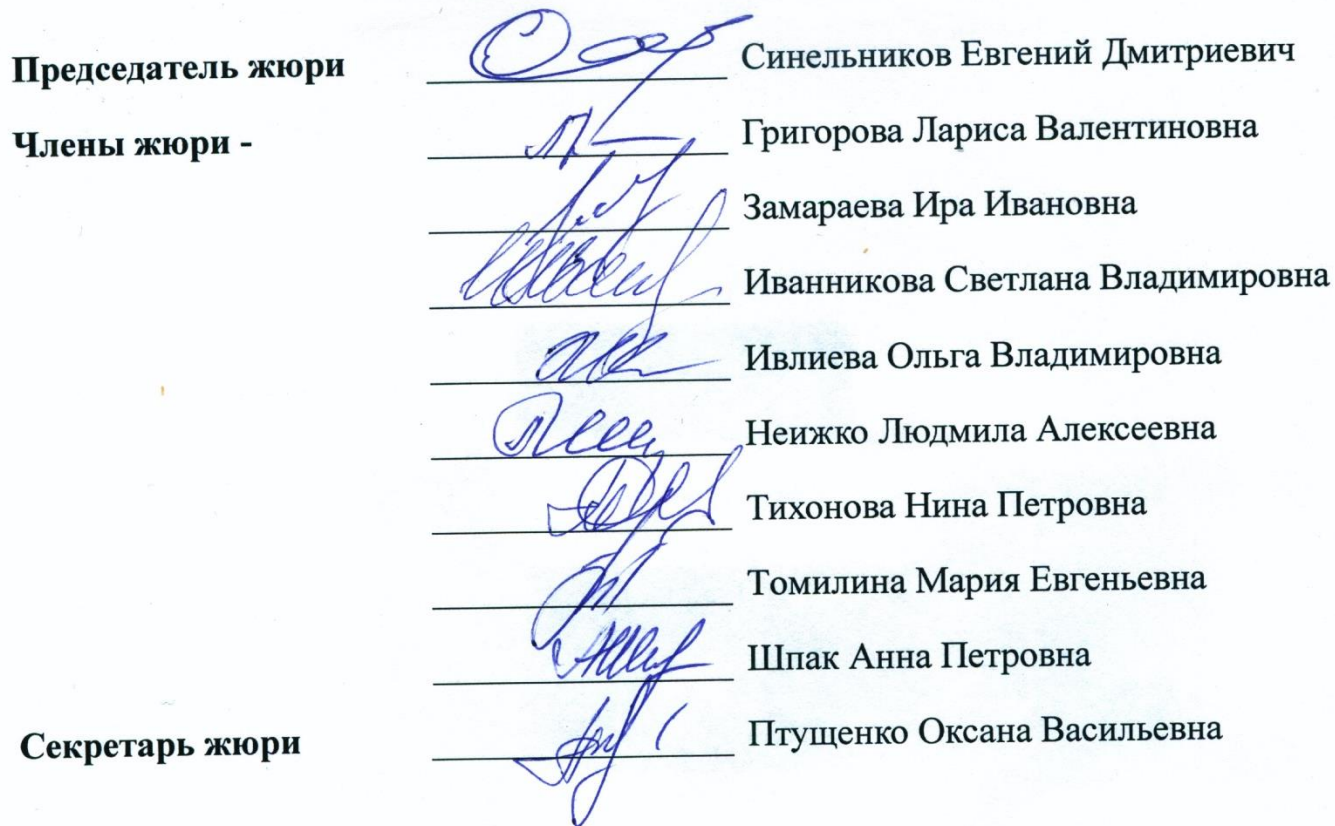 Председатель жюри Синельников Евгений Дмитриевич
Члены жюри - Григорова Лариса Валентиновна
Замараева Ира Ивановна
Иванникова Светлана Владимировна
Ивлиева Ольга Владимировна
Неижко Людмила Алексеевна
Тихонова Нина Петровна
Томилина Мария Евгеньевна
Шпак Анна Петровна
Секретарь жюри Птущенко Оксана Васильевна